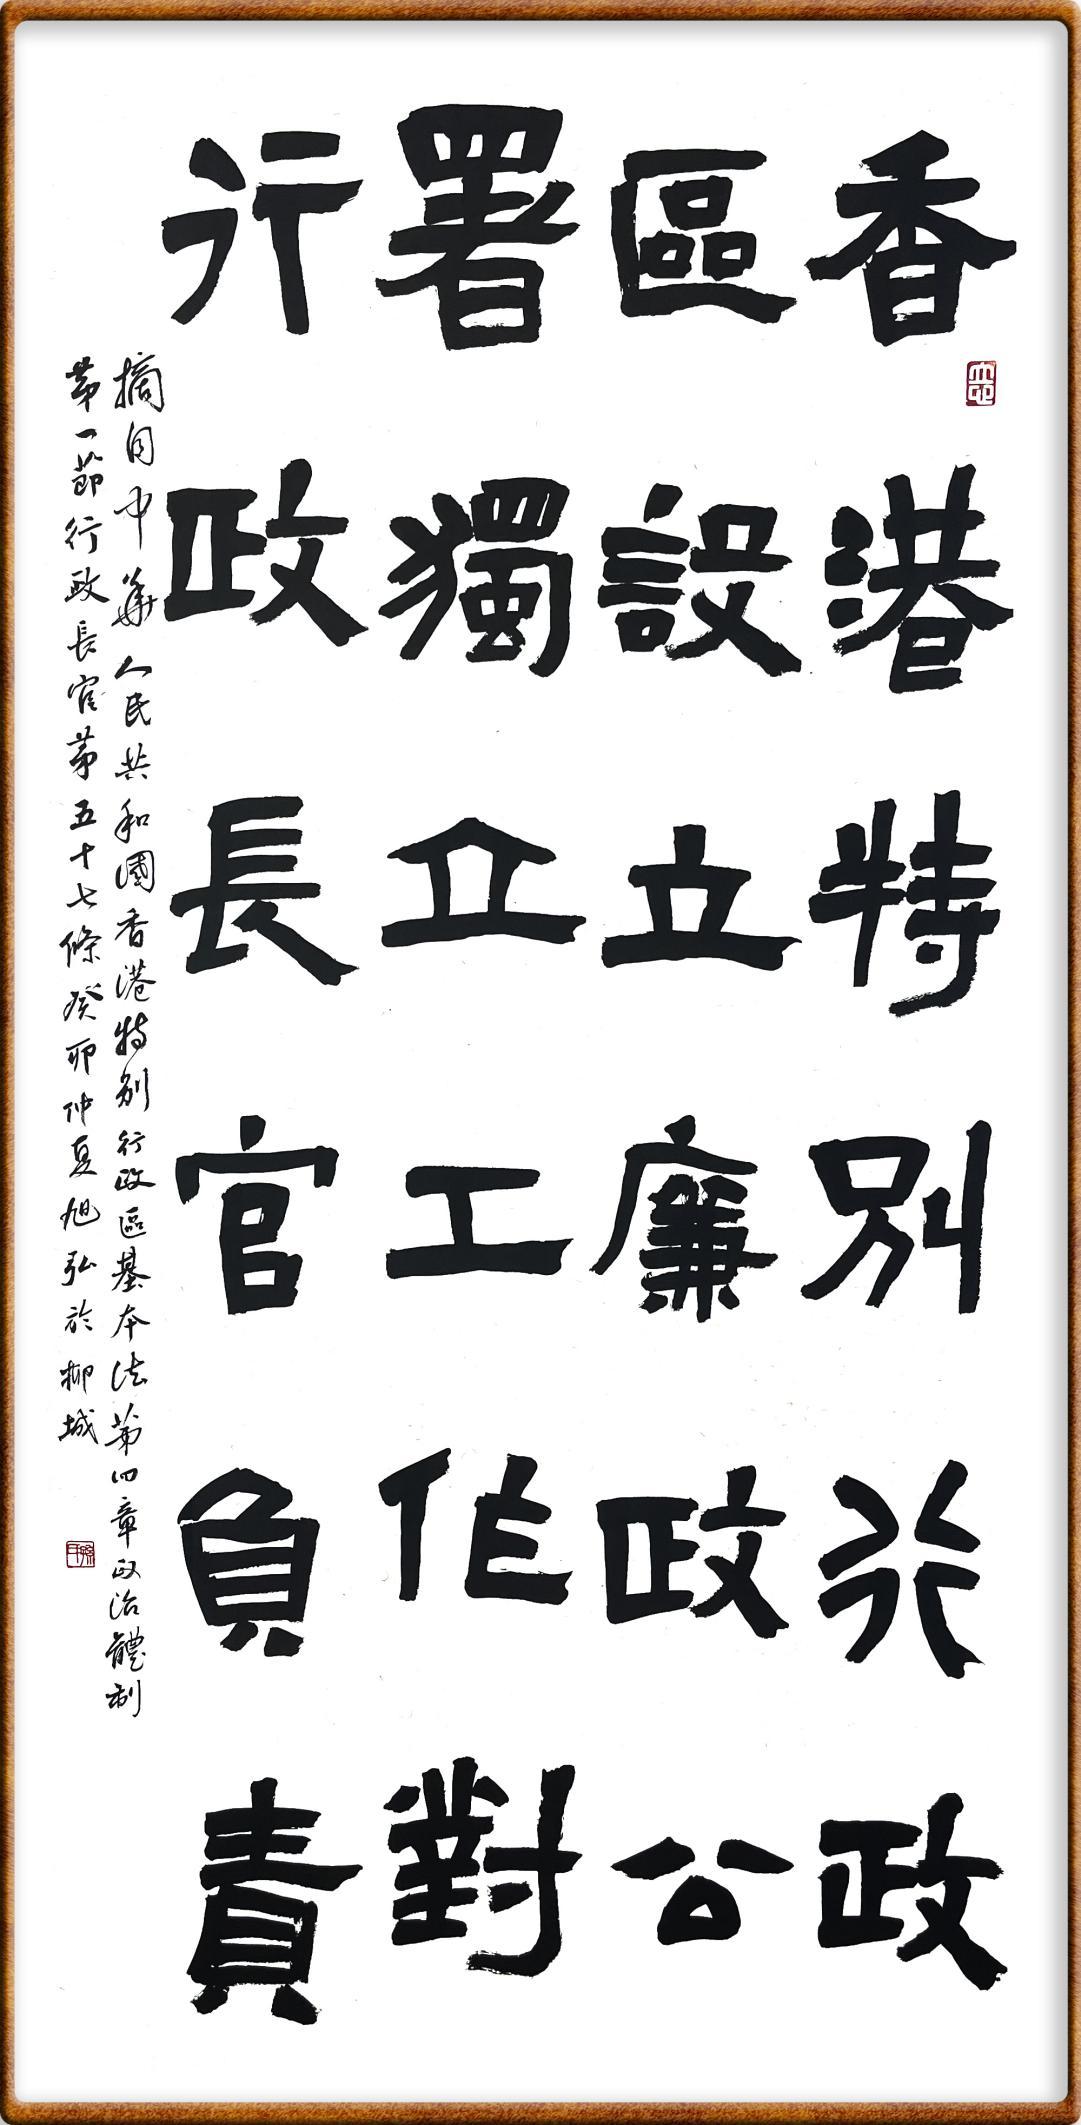 香港特別行政
區設立廉政公
署獨立工作對
行政長官負責
摘自中華人民共和國香港特别行政區基本法第四章政治體制
第一節行政長官第五十七條癸卯仲夏旭弘於柳城